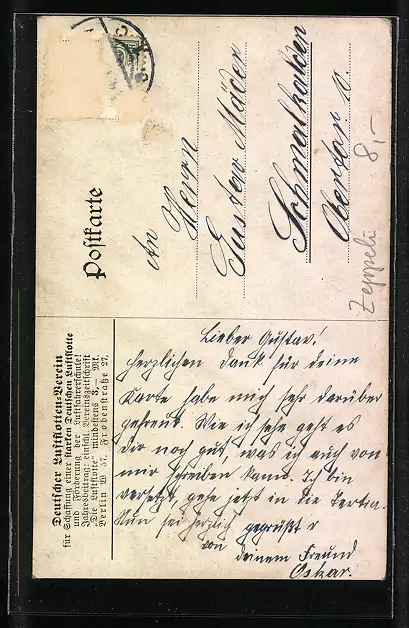 Postkarte
An
Herrn
Gustav Mäder
Schmalkalden
Zeppelin
8,–
Deutscher Luftflotten-Verein
für Schaffung einer starken Deutschen Luftflotte
und Förderung der Luftfahrerschule!
Jahresbeitrag: einschl. Vereinszeitschrift
"Die Luftflotte" mindestens 3,— Mk.
Berlin W 57, Frobenstraße 27.
Lieber Gustav!
Herzlichen Dank für deine
Karte habe mich sehr darüber
gefreut. Wie ich sehe geht es
dir noch gut, was ich auch von
mir schreiben kann. Ich bin
versetzt, gehe jetzt in die Tertia.
Nun sei herzlich gegrüßt
von
deinem Freund
Oskar.